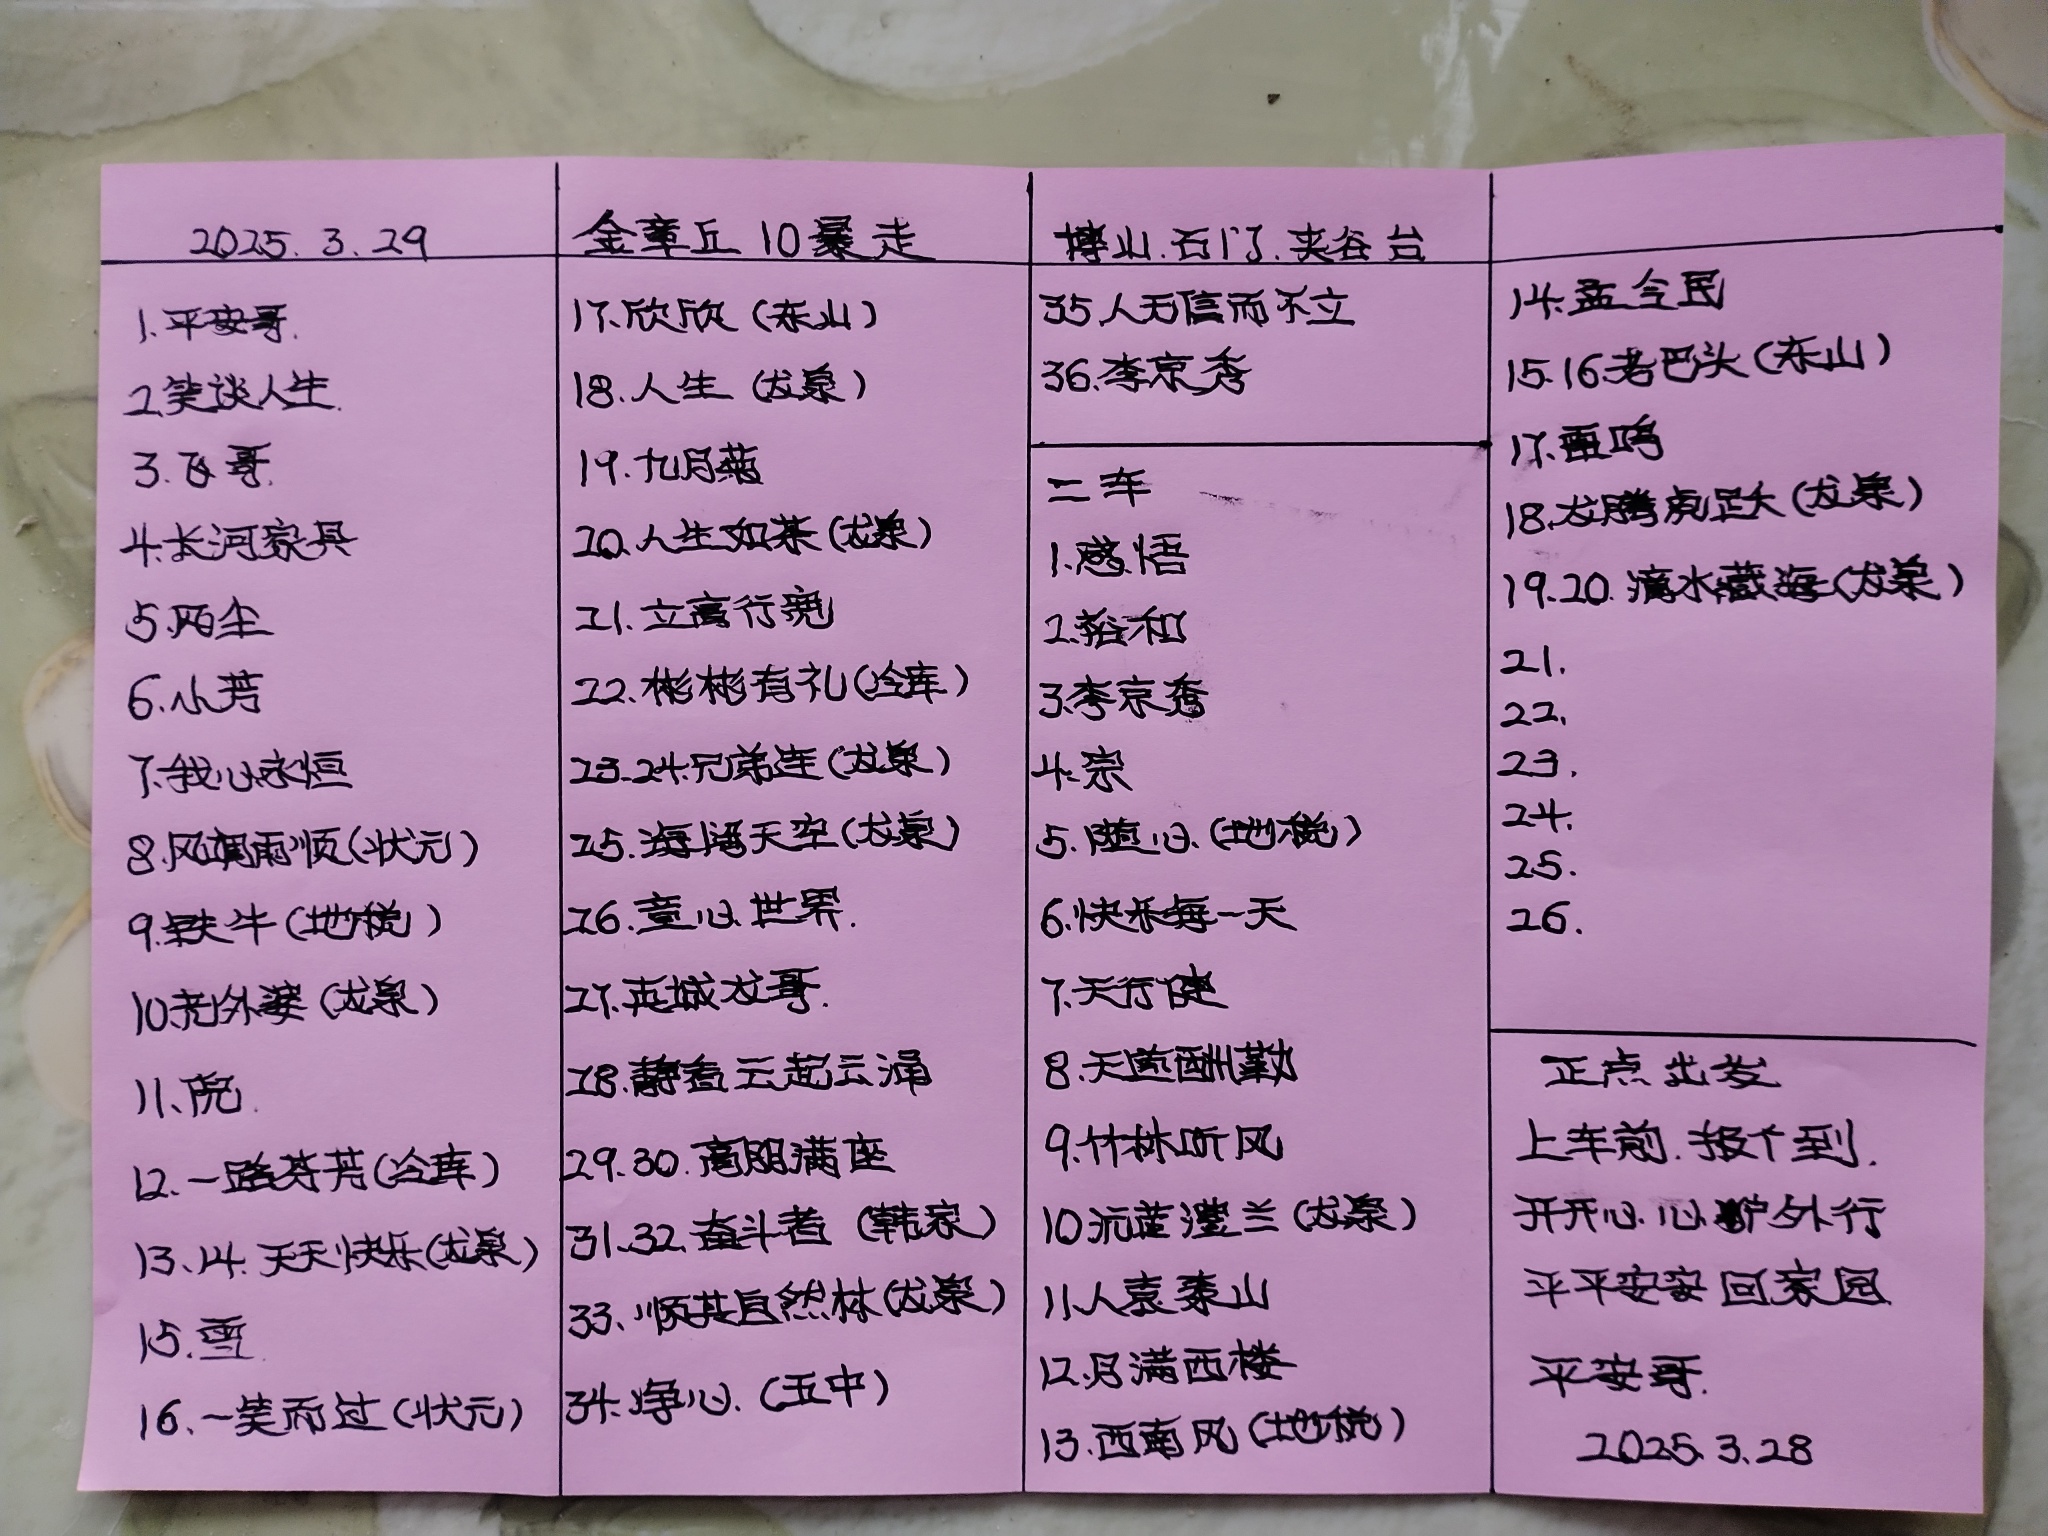 2025.3.29
1.平安哥.
2.笑谈人生.
3.飞哥.
4.长河家具
5.陌尘
6.小芳
7.我心永恒
8.风调雨顺(状元)
9.铁牛(地税)
10.老外婆(龙泉)
11.
12.一路芬芳(冷库)
13.14.天天快乐(龙泉)
15.雪.
16.一笑而过(状元)
全章丘10暴走
17.欣欣(东山)
18.人生(龙泉)
19.九月菊
20.人生如茶(龙泉)
21.立高行宽
22.彬彬有礼(冷库)
23-24.兄弟连(龙泉)
25.海阔天空(龙泉)
26.童心世界.
27.英城龙哥.
28.静看云起云涌
29.30.高朋满座
31.32.奋斗者(韩家)
33.顺其自然林(龙泉)
34.净心.(五中)
博山.石门.夹谷台
35.人无信而不立
36.李京秀
二车
1.感悟
2.裕和
3.李京秀
4.宗
5.随心.(地税)
6.快乐每一天
7.天行健
8.天道酬勤
9.竹林听风
10.沅芷澧兰(龙泉)
11.人袁泰山
12.月满西楼
13.西南风(地税)
14.孟令民
15.16.老巴头(东山)
17.雷鸣
18.龙腾虎跃(龙泉)
19.20.滴水藏海(龙泉)
21.
22.
23.
24.
25.
26.
正点出发
上车前.报个到.
开开心心驴外行
平平安安回家园.
平安哥.
2025.3.28